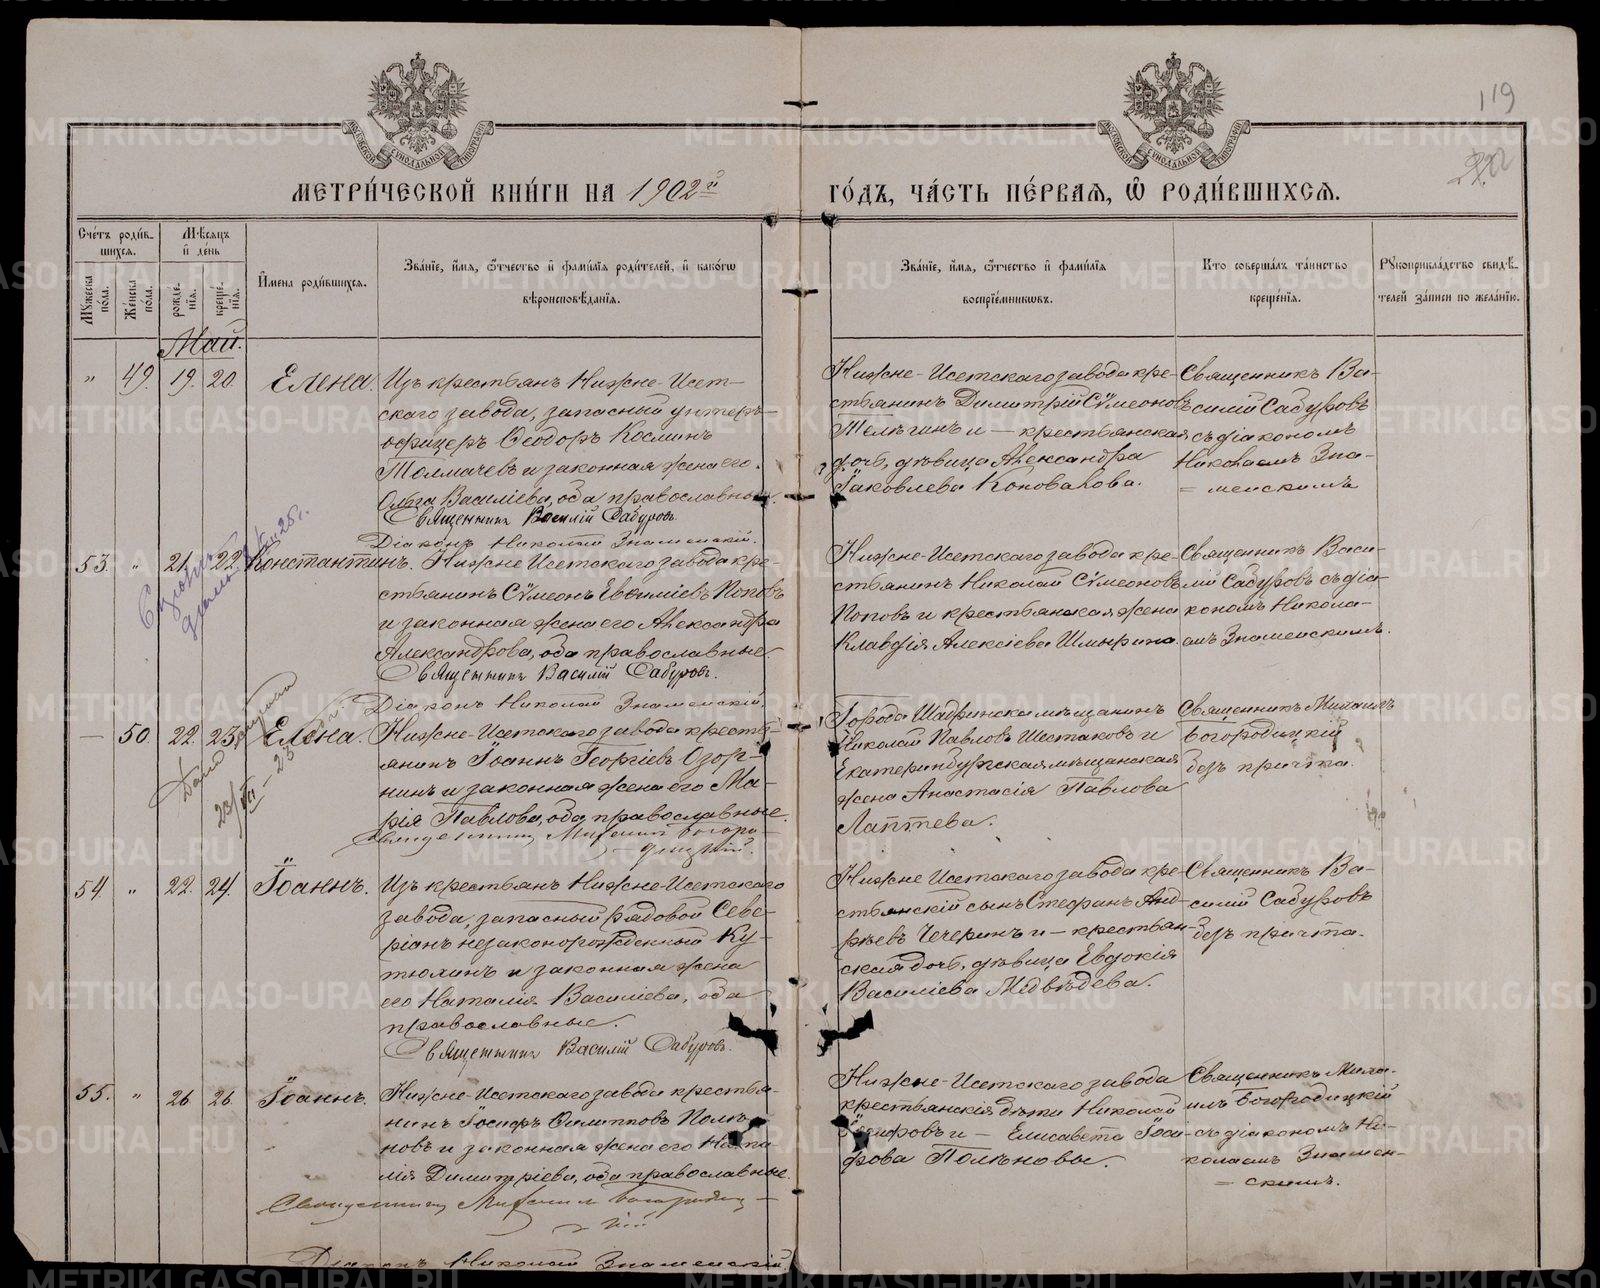 119
МЕТРИ́ЧЕСКОЙ КНИ́ГИ НА 1902й
ГО́ДЪ, ЧА́СТЬ ПЕ́РВАЯ, Ѡ РОДИ́ВШИХСЯ.
Сче́тъ роди́в-
шихся.
Му́жеска по́ла.
Же́нска по́ла.
Мѣ́сяцъ и де́нь
рожде́-
нїя.
креще́-
нїя.
И́мена роди́вшихся.
Зва́нїе, и́мя, ѻ́тчество и фами́лїя роди́телей, и како́гѡ
вѣроисповѣ́данїя.
Зва́нїе, и́мя, ѻ́тчество и фами́лїя
воспрїе́мниковъ.
Кто̀ соверша́лъ та́инство
креще́нїя.
Рꙋкоприкла́дство свидѣ́-
телей за́писи по жела́нїю.
Май.
" 49. 19. 20. Елена. Изъ крестьянъ Нижне-Исет-
скаго завода, запасный унтеръ-
офицеръ Ѳеодоръ Косминъ
Толмачевъ и законная жена его
Ольга Василіева, оба православные.
Священникъ Василій Сабуровъ.
Діаконъ Николай Знаменскій.
Нижне-Исетскаго завода кре-
стьянинъ Димитрій Сѵмеоновъ
Телѣгинъ и – крестьянская
дочь, дѣвица Александра
Іаковлева Коновалова.
Священникъ Ва-
силій Сабуровъ
съ діакономъ
Николаемъ Зна-
= менскимъ
53. " 21. 22. Константинъ. Нижне Исетскаго завода кре-
стьянинъ Сѵмеонъ Евѳиміевъ Поповъ
и законная жена его Александра
Александрова, оба православные.
Священникъ Василій Сабуровъ.
Діаконъ Николай Знаменскій.
Нижне-Исетскаго завода кре-
стьянинъ Николай Сѵмеоновъ
Поповъ и крестьянская жена
Клавдія Алексіева Шмырина.
Священникъ Васи-
лій Сабуровъ съ діа-
кономъ Никола-
емъ Знаменскимъ.
— 50. 22. 23. Елена. Нижне-Исетскаго завода кресть-
янинъ Іоаннъ Георгіевъ Озор-
нинъ и законная жена его Ма-
рія Павлова, оба православные.
Священникъ Михаилъ Богоро-
дицкій.
Города Шадринска мѣщанинъ
Николай Павловъ Шестаковъ и
Екатеринбургская мѣщанская
жена Анастасія Павлова
Лаптева.
Священникъ Михаилъ
Богородицкій
безъ причта.
54. " 22. 24. Іоаннъ. Изъ крестьянъ Нижне-Исетскаго
завода, запасный рядовой Севе-
ріанъ незаконорожденный Ку-
тюлинъ и законная жена
его Наталія Василіева, оба
православные.
Священникъ Василій Сабуровъ.
Нижне Исетскаго завода кре-
стьянскій сынъ Стефанъ Анд-
рѣевъ Чечеринъ и – крестьян-
ская дочь, дѣвица Евдокія
Василіева Медвѣдева.
Священникъ Ва-
силій Сабуровъ
безъ причта.
55. " 26. 26. Іоаннъ. Нижне-Исетскаго завода крестья-
нинъ Іосифъ Филипповъ Полѣ-
новъ и законная жена его Ната-
лія Димитріева, оба православные.
Священникъ Михаилъ Богородиц-
кій
Діаконъ Николай Знаменскій.
Нижне-Исетскаго завода
крестьянскія дѣти Николай
Іосифовъ и – Елисавета Іоси-
фова Полѣновы.
Священникъ Миха-
илъ Богородицкій
съ діакономъ Ни-
колаемъ Знамен-
= скимъ.